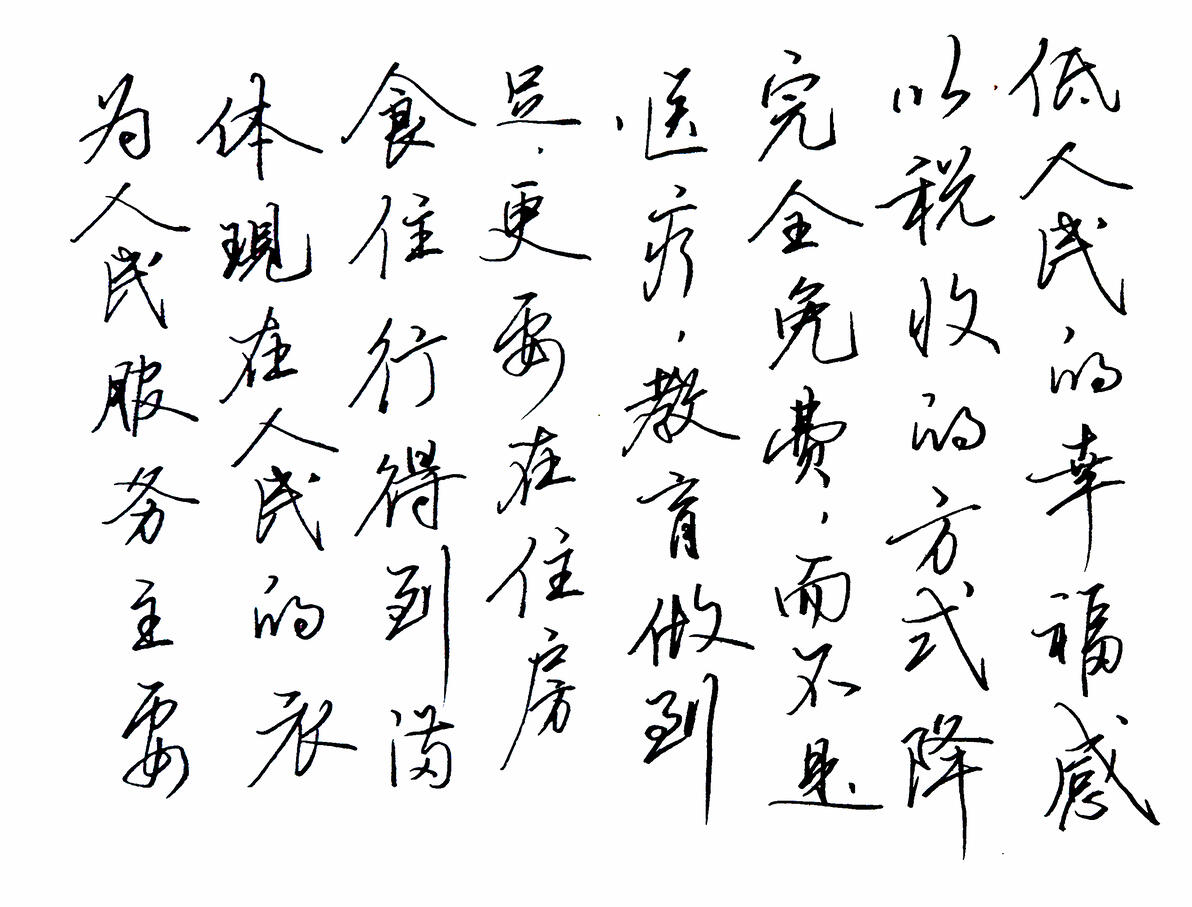 为人民服务主要
体現在人民的衣
食住行得到满
足，更要在住房
、医疗、教育做到
完全免费，而不是
以税收的方式降
低人民的幸福感